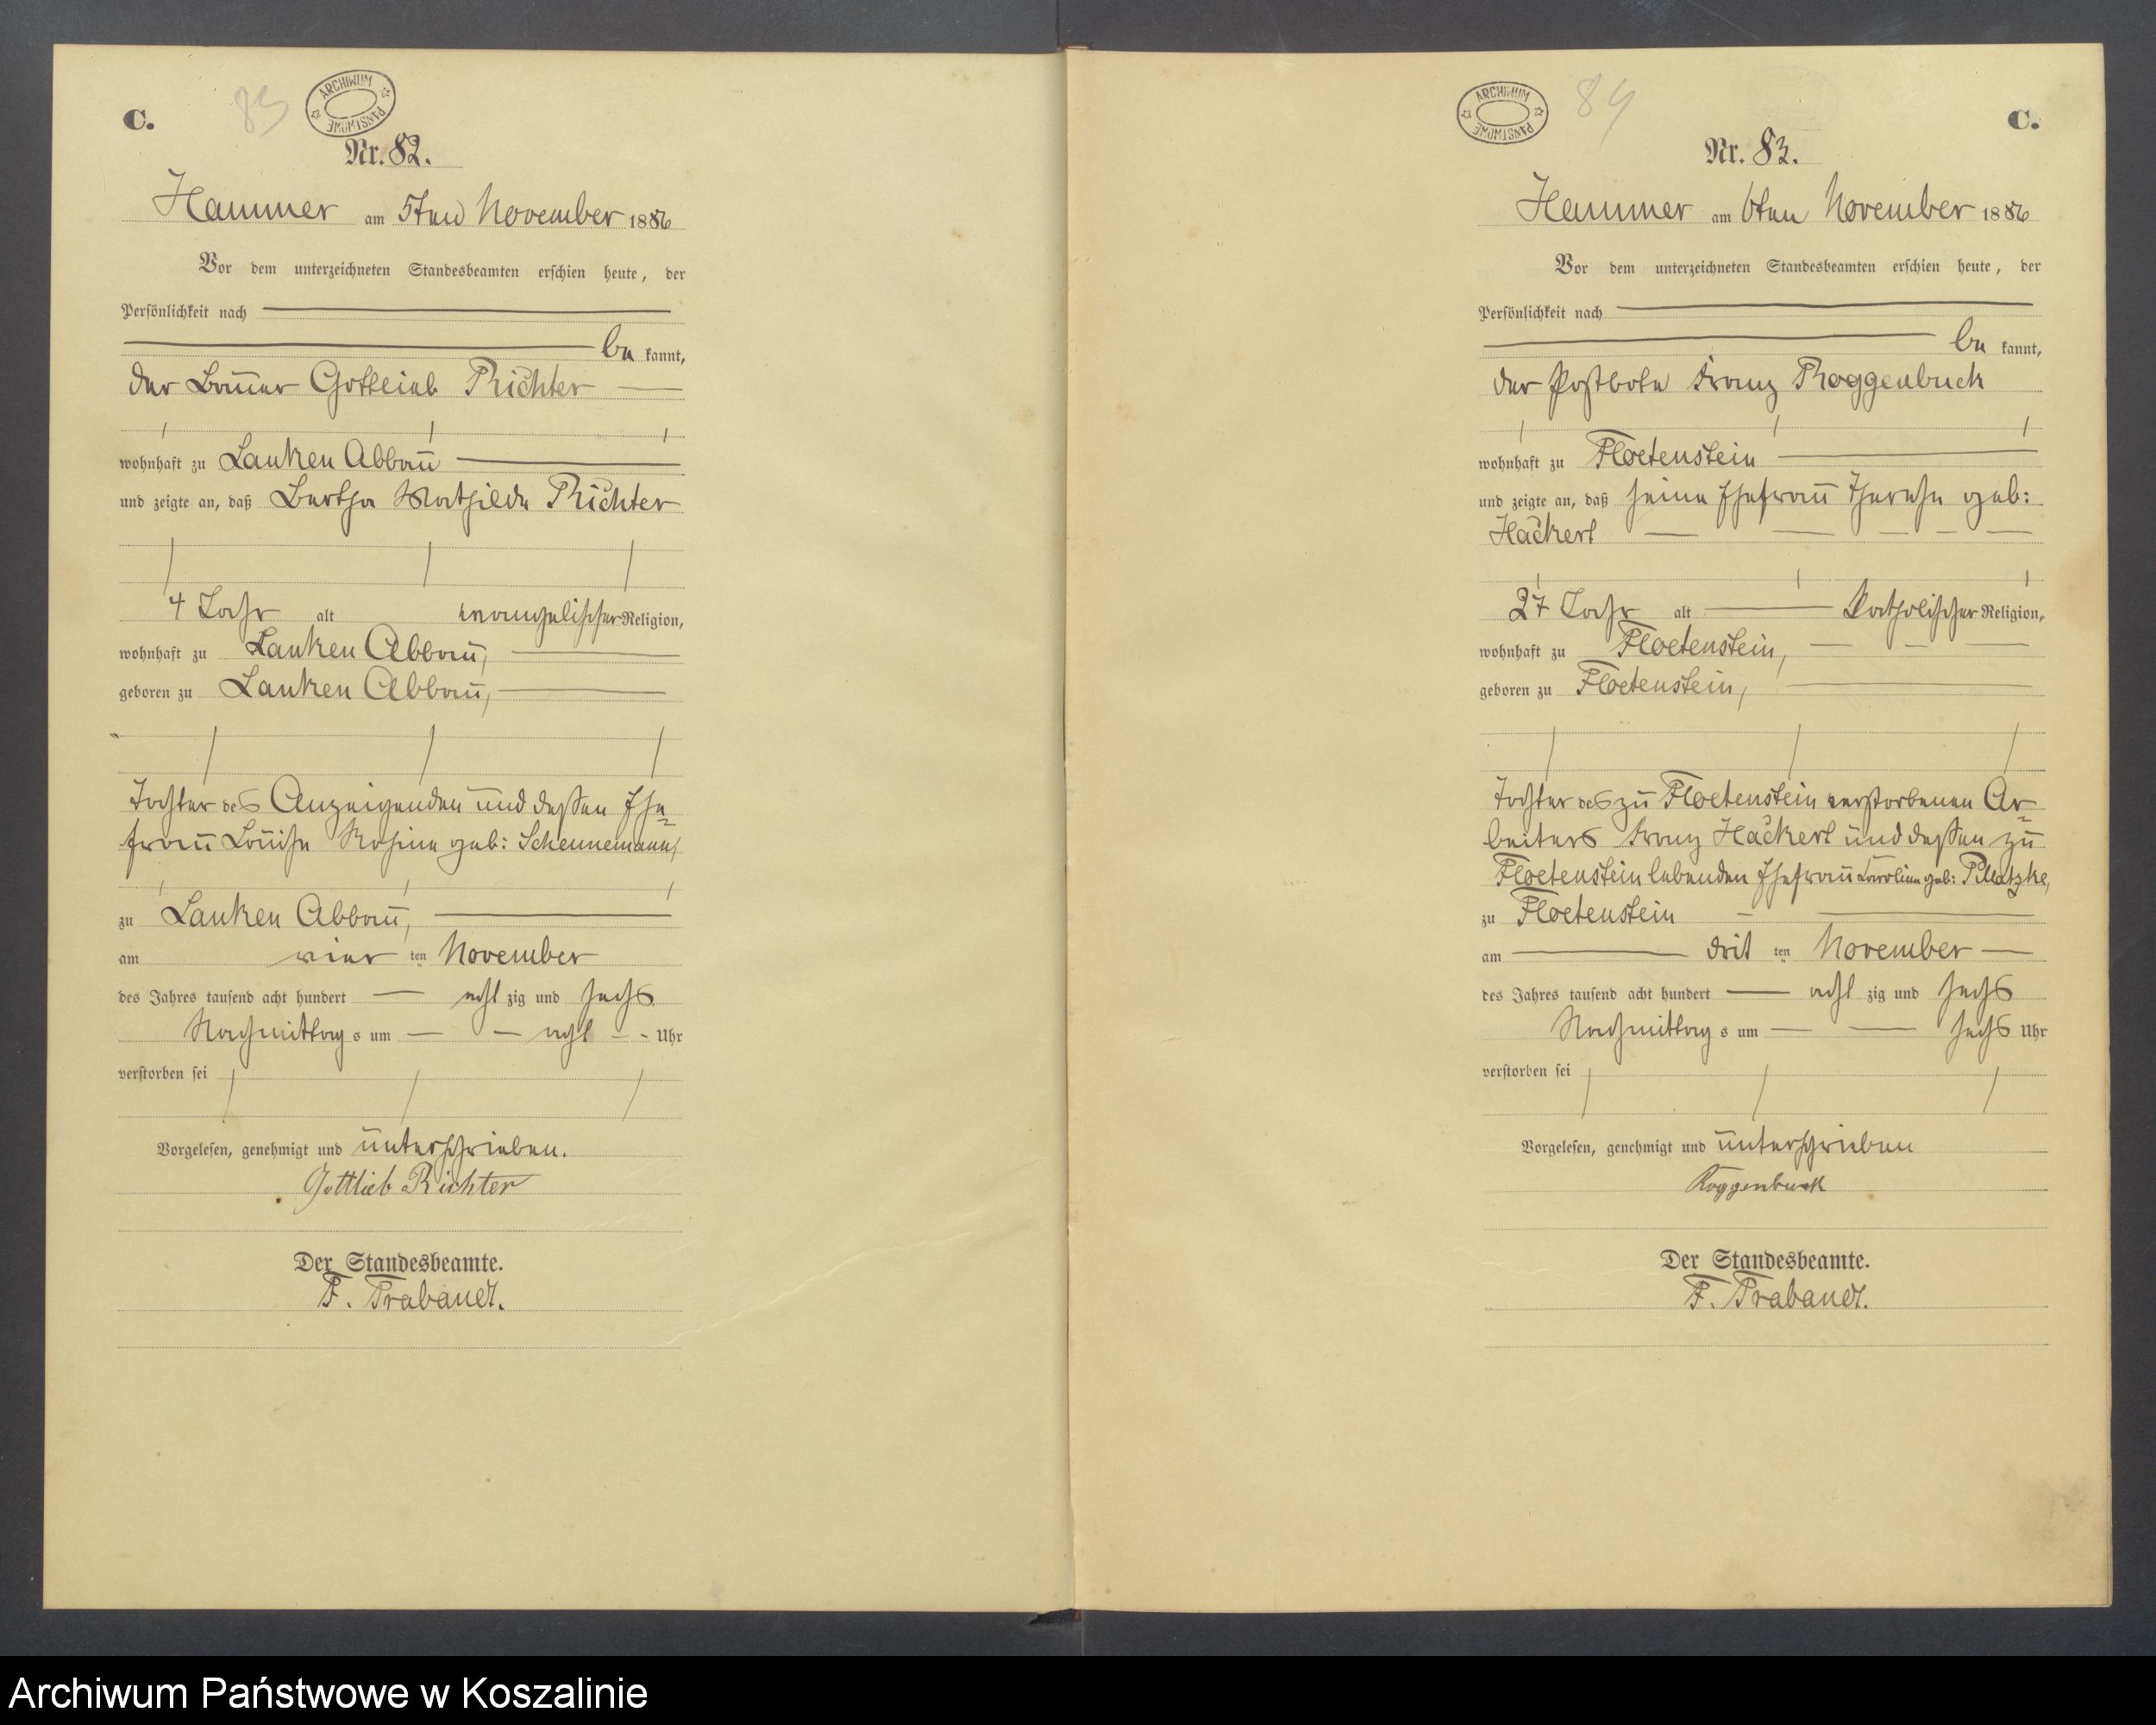 C.
83
ARCHIWUM PAŃSTWOWE
Nr. 82.
Hammer am 5ten November 1886
Vor dem unterzeichneten Standesbeamten erschien heute, der
Persönlichkeit nach
be kannt,
der Bauer Gottlieb Richter
wohnhaft zu Lanken Abbau
und zeigte an, daß Bertha Mathilde Richter
4 Jahr alt evangelischer Religion,
wohnhaft zu Lanken Abbau,
geboren zu Lanken Abbau,
Tochter des Anzeigenden und dessen Ehe=
frau Louise Rosine geb: Schennemann,
zu Lanken Abbau,
am vier ten November
des Jahres tausend acht hundert acht zig und sechs
Nachmittag s um acht Uhr
verstorben sei
Vorgelesen, genehmigt und unterschrieben.
Gottlieb Richter
Der Standesbeamte.
F. Trabandt.
ARCHIWUM PAŃSTWOWE
84
C.
Nr. 83.
Hammer am 6ten November 1886
Vor dem unterzeichneten Standesbeamten erschien heute, der
Persönlichkeit nach
be kannt,
der Postbote Franz Roggenbuck
wohnhaft zu Floetenstein
und zeigte an, daß seine Ehefrau Therese geb:
Hackert
27 Jahr alt katholischer Religion,
wohnhaft zu Floetenstein,
geboren zu Floetenstein,
Tochter des zu Floetenstein verstorbenen Ar=
beiters Franz Hackert und dessen zu
Floetenstein lebenden Ehefrau Caroline geb:
zu Floetenstein
am drit ten November
des Jahres tausend acht hundert acht zig und sechs
Nachmittag s um sechs Uhr
verstorben sei
Vorgelesen, genehmigt und unterschrieben
Roggenbuck
Der Standesbeamte.
F. Trabandt.
Archiwum Państwowe w Koszalinie